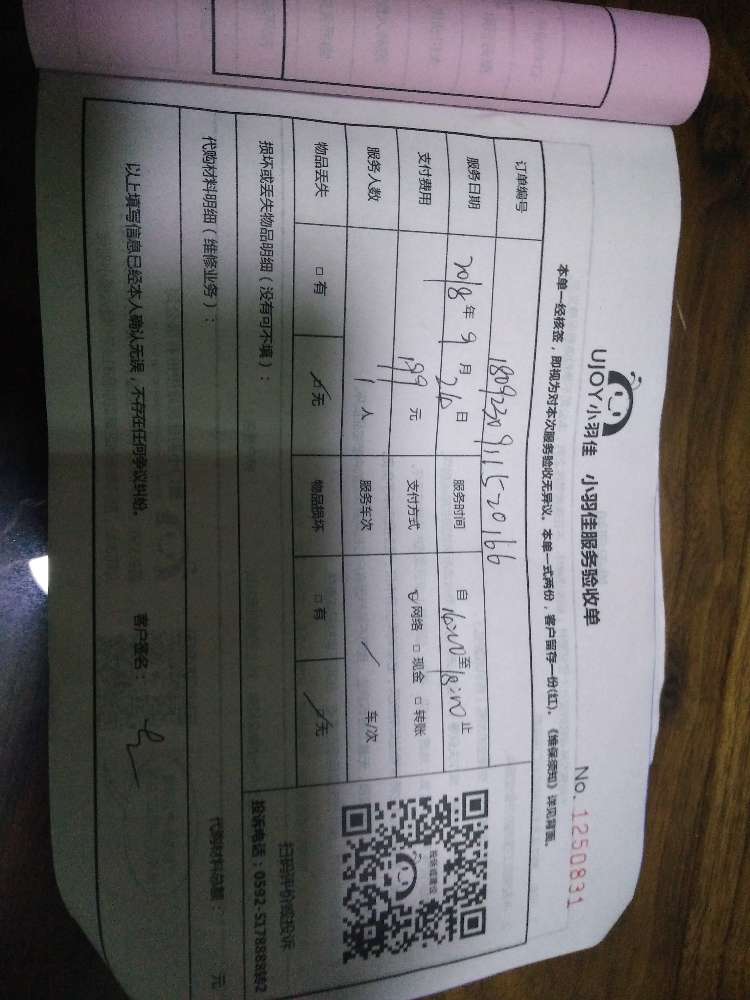 UJOY小羽佳 小羽佳服务验收单
No. 1250831
本单一经核签，即视为对本次服务验收无异议。本单一式两份，客户留存一份(红)。《维保须知》详见背面。
订单编号 1809230911520166
服务日期 2018年9月 日 服务时间 自 至18:00止
支付费用 199元 支付方式 ☑网络 □现金 □转账
服务人数 1人 服务车次 / 车/次
物品丢失 □有 ☑无 物品损坏 □有 ☑无
损坏或丢失物品明细（没有可不填）：
扫码评价或投诉
投诉电话：0592-5178888转2
代购材料明细（维修业务）：
代购材料总额： 元
以上填写信息已经本人确认无误，不存在任何争议纠纷。 客户签名：